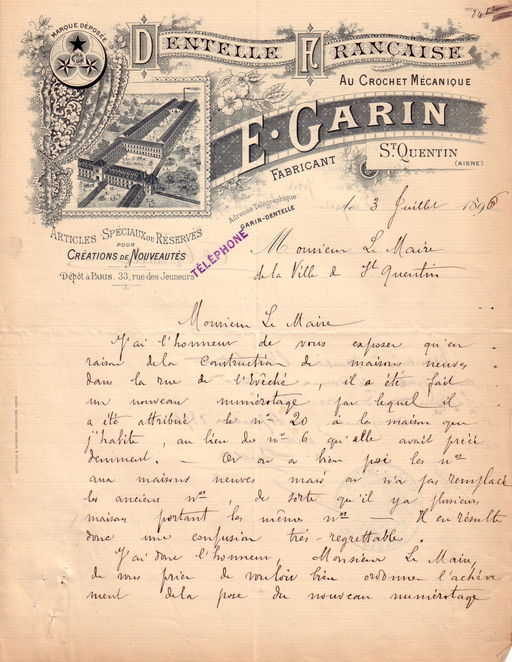 MARQUE DÉPOSÉE
DENTELLE FRANÇAISE
AU CROCHET MÉCANIQUE
E. GARIN
FABRICANT
ST QUENTIN
(AISNE)
Adresse Télégraphique:
GARIN-DENTELLE
TÉLÉPHONE
ARTICLES SPÉCIAUX OU RÉSERVÉS
POUR
CRÉATIONS DE NOUVEAUTÉS
Dépôt à PARIS, 33, rue des Jeuneurs
le 3 Juillet 1896
Monsieur Le Maire
de la Ville de St Quentin
Monsieur Le Maire
J'ai l'honneur de vous exposer qu'en
raison de la construction de maisons neuves
dans la rue de l'Evêché, il a été fait
un nouveau numérotage par lequel il
a été attribué le no 20 à la maison que
j'habite, au lieu du no 6 qu'elle avait précé
demment. — Or on a bien posé les nos
aux maisons neuves mais on n'a pas remplacé
les anciens nos, de sorte qu'il y a plusieurs
maisons portant les mêmes nos — Il en résulte
donc une confusion très-regrettable.
J'ai donc l'honneur, Monsieur Le Maire,
de vous prier de vouloir bien ordonner l'achève
ment de la pose du nouveau numérotage